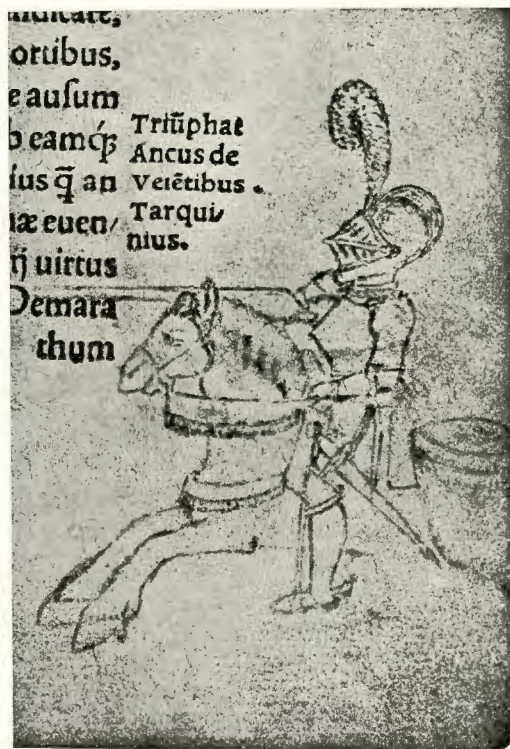 ortibus,
e auſum
eamqꝫ
ſus q̃ an
uæ euen/
uirtus
Demara
thum
Triũphat
Ancus de
Veiẽtibus.
Tarqui/
nius.